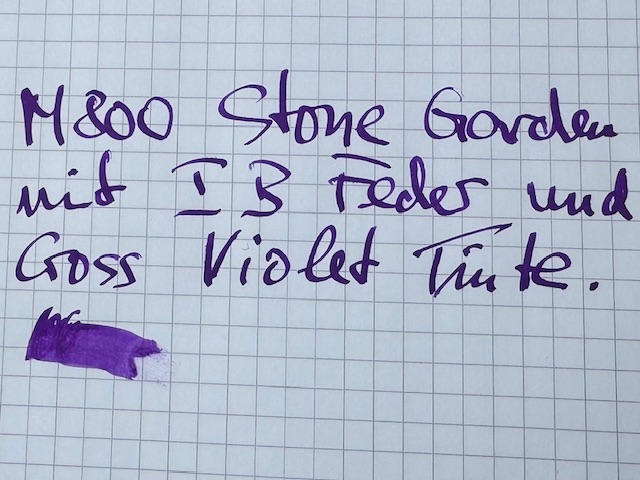 M800 Stone Garden
mit IB Feder und
Cross Violet Tinte.